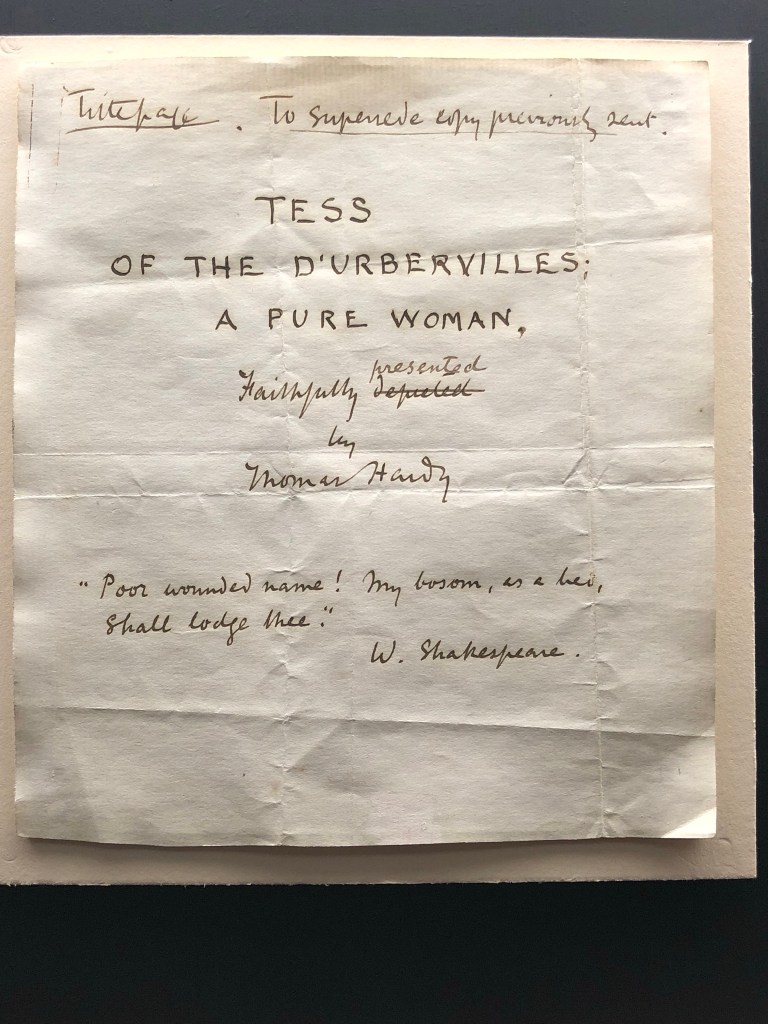 Title page. To supersede copy previously sent.
TESS
OF THE D'URBERVILLES;
A PURE WOMAN,
presented
Faithfully depicted
by
Thomas Hardy
"Poor wounded name! My bosom, as a bed,
Shall lodge thee."
W. Shakespeare.